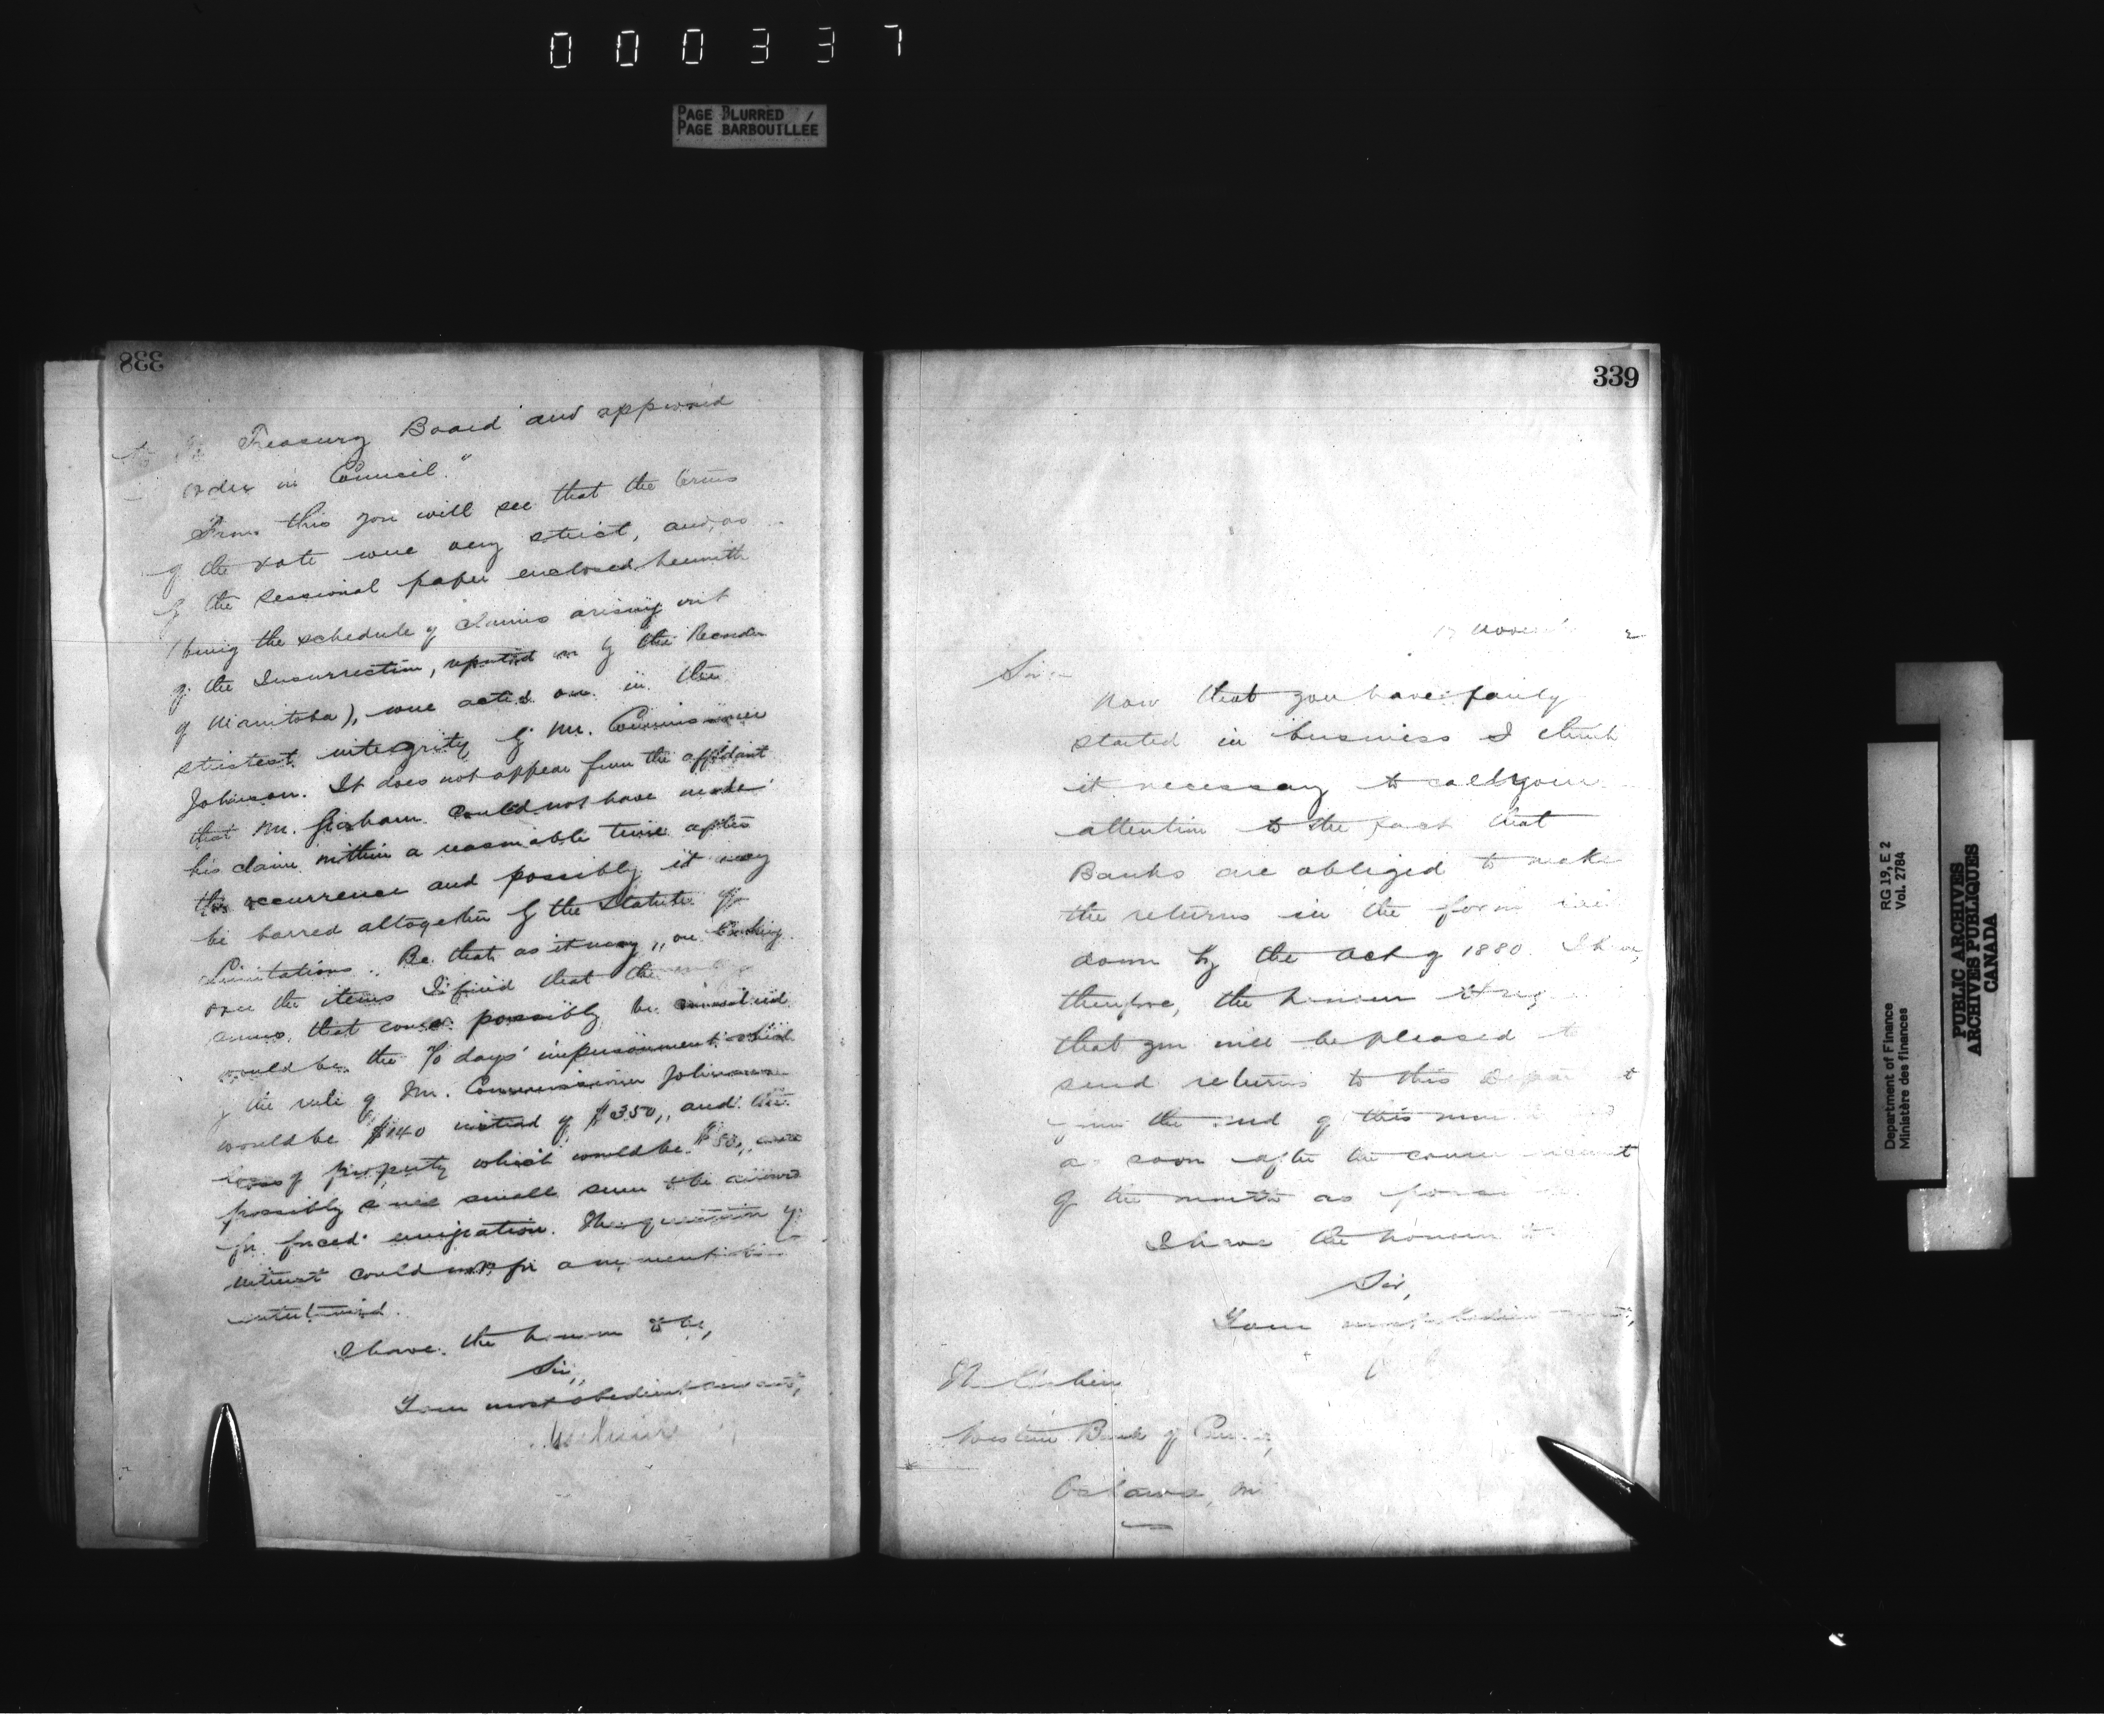 000337
PAGE BLURRED
PAGE BARBOUILLÉE
338
Treasury Board and approved
order in Council."
From this you will see that the terms
of the vote were very strict, and, as
by the sessional paper enclosed herewith
(being the schedule of claims arising out
of the Insurrection, reported on by the Recorder
of Manitoba), were acted on in the
strictest integrity by Mr. Commissioner
Johnson. It does not appear from the affidavit
that Mr. could not have made
his claim within a reasonable time after
the occurrence and possibly it may
be barred altogether by the Statute of
Limitations. Be that as it may, on looking
over the items I find that the
sums that could possibly be
would be the 70 days' imprisonment which
by the rule of Mr. Commissioner Johnson
would be $140 instead of $350, and the
loss of property which would be $50,
possibly some small sum to be allowed
for forced emigration. The question of
interest could not for a moment be
entertained.
I have the honour to be,
Sir,
Your most obedient servant,
339
17 Novem 2
Sir:-
Now that you have fairly
started in business I think
it necessary to call your
attention to the fact that
Banks are obliged to make
the returns in the form laid
down by the Act of 1880. I have,
therefore, the honour to
that you will be pleased to
send returns to this
from the end of this month
as soon after the
of the month as
I have the honour to
Sir,
Your most obedient
Western Bank of
Oshawa,
Department of Finance
Ministère des finances
RG 19, E 2
Vol. 2784
PUBLIC ARCHIVES
ARCHIVES PUBLIQUES
CANADA